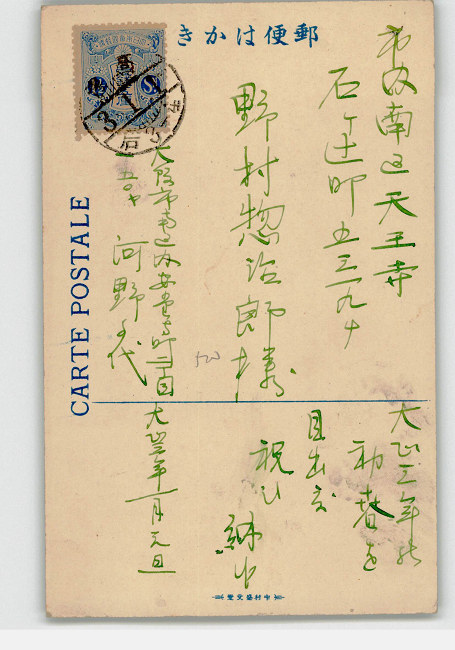 郵便はかき
市内南区天王寺
石ヶ辻町五三一九ノ
野村惣治郎様
大阪市南区内安堂寺町二丁目
河野千代
大正三年の
初春を
目出度
祝ひ
大正三年一月元旦
CARTE POSTALE